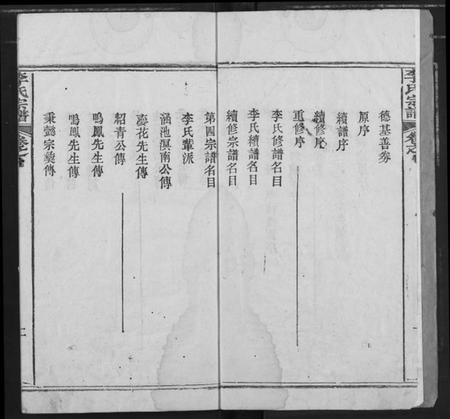 李氏宗譜
德基善券
原序
續譜序
續修序
重修序
李氏修譜名目
李氏續譜名目
續修宗譜名目
第四宗譜名目
李氏輩派
涵池溟南公傳
臺花先生傳
紹青公傳
鳴鳳先生傳
鳴鳳先生傳
秉懿宗彝傳
李氏宗譜